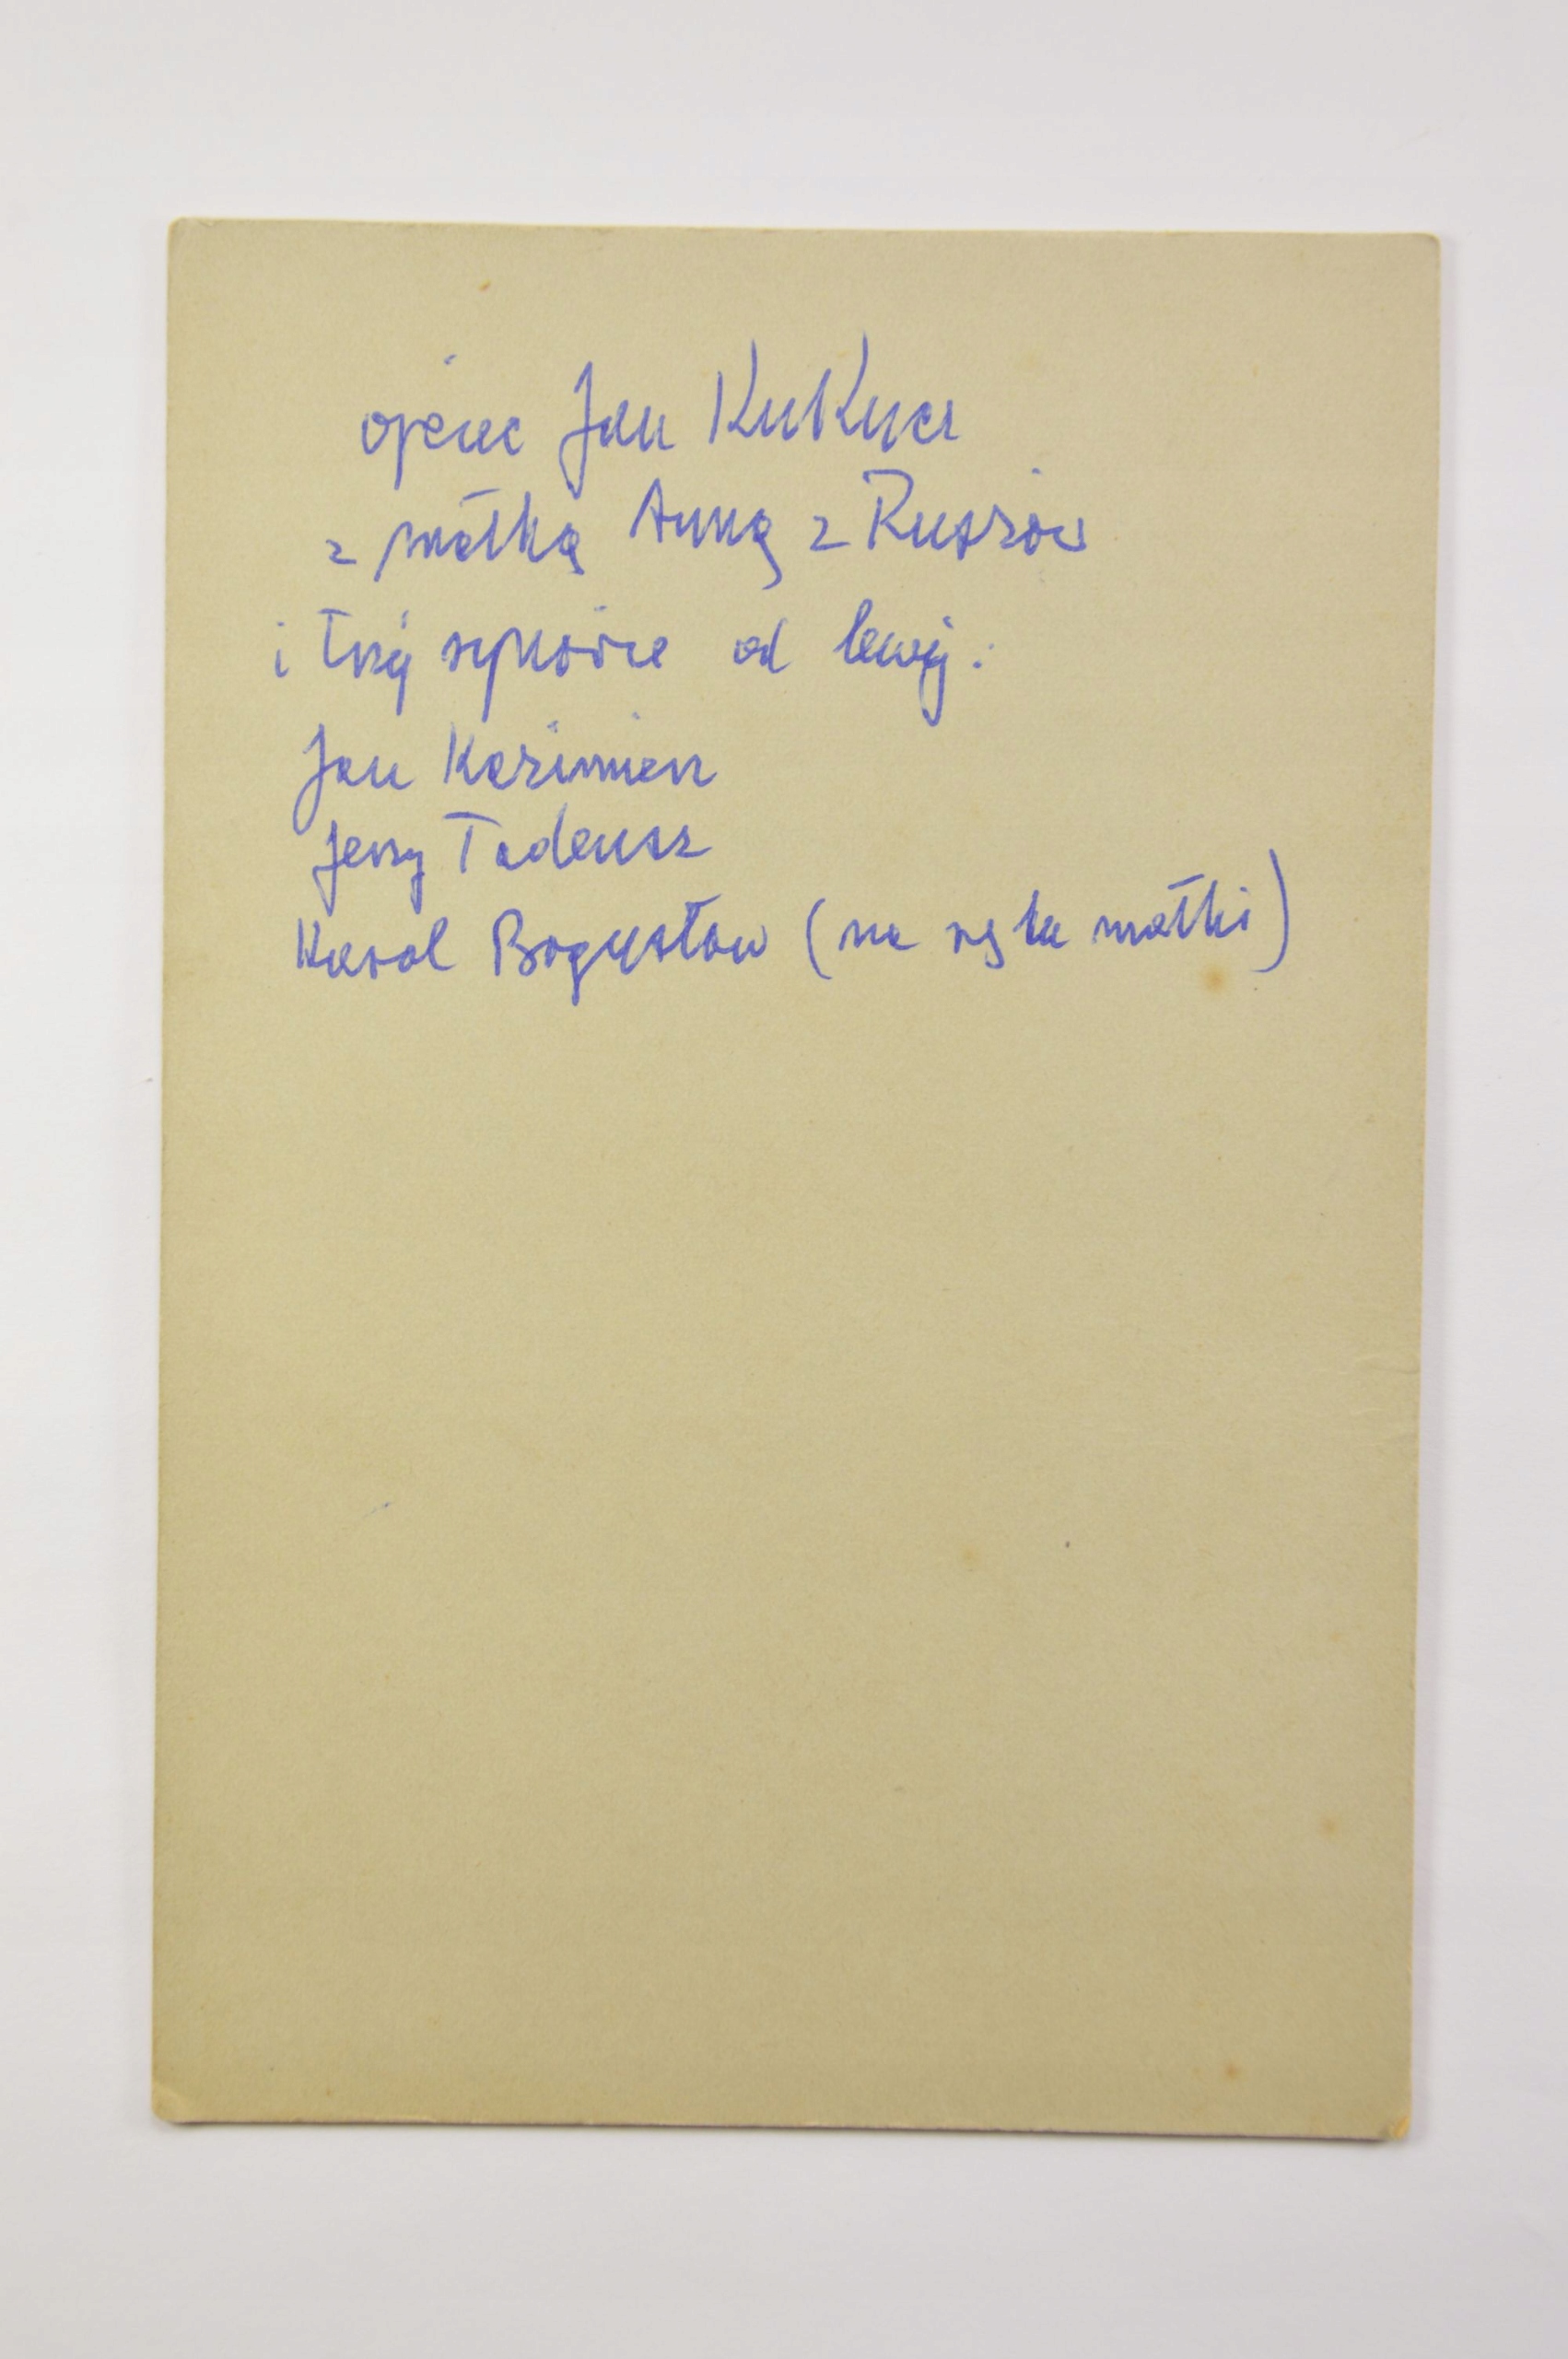 ojciec Jan Kukucz
z matką Anną z Ruszów
i trzej synowie od lewej:
Jan Kazimierz
Jerzy Tadeusz
Karol Bogusław (na ręku matki)